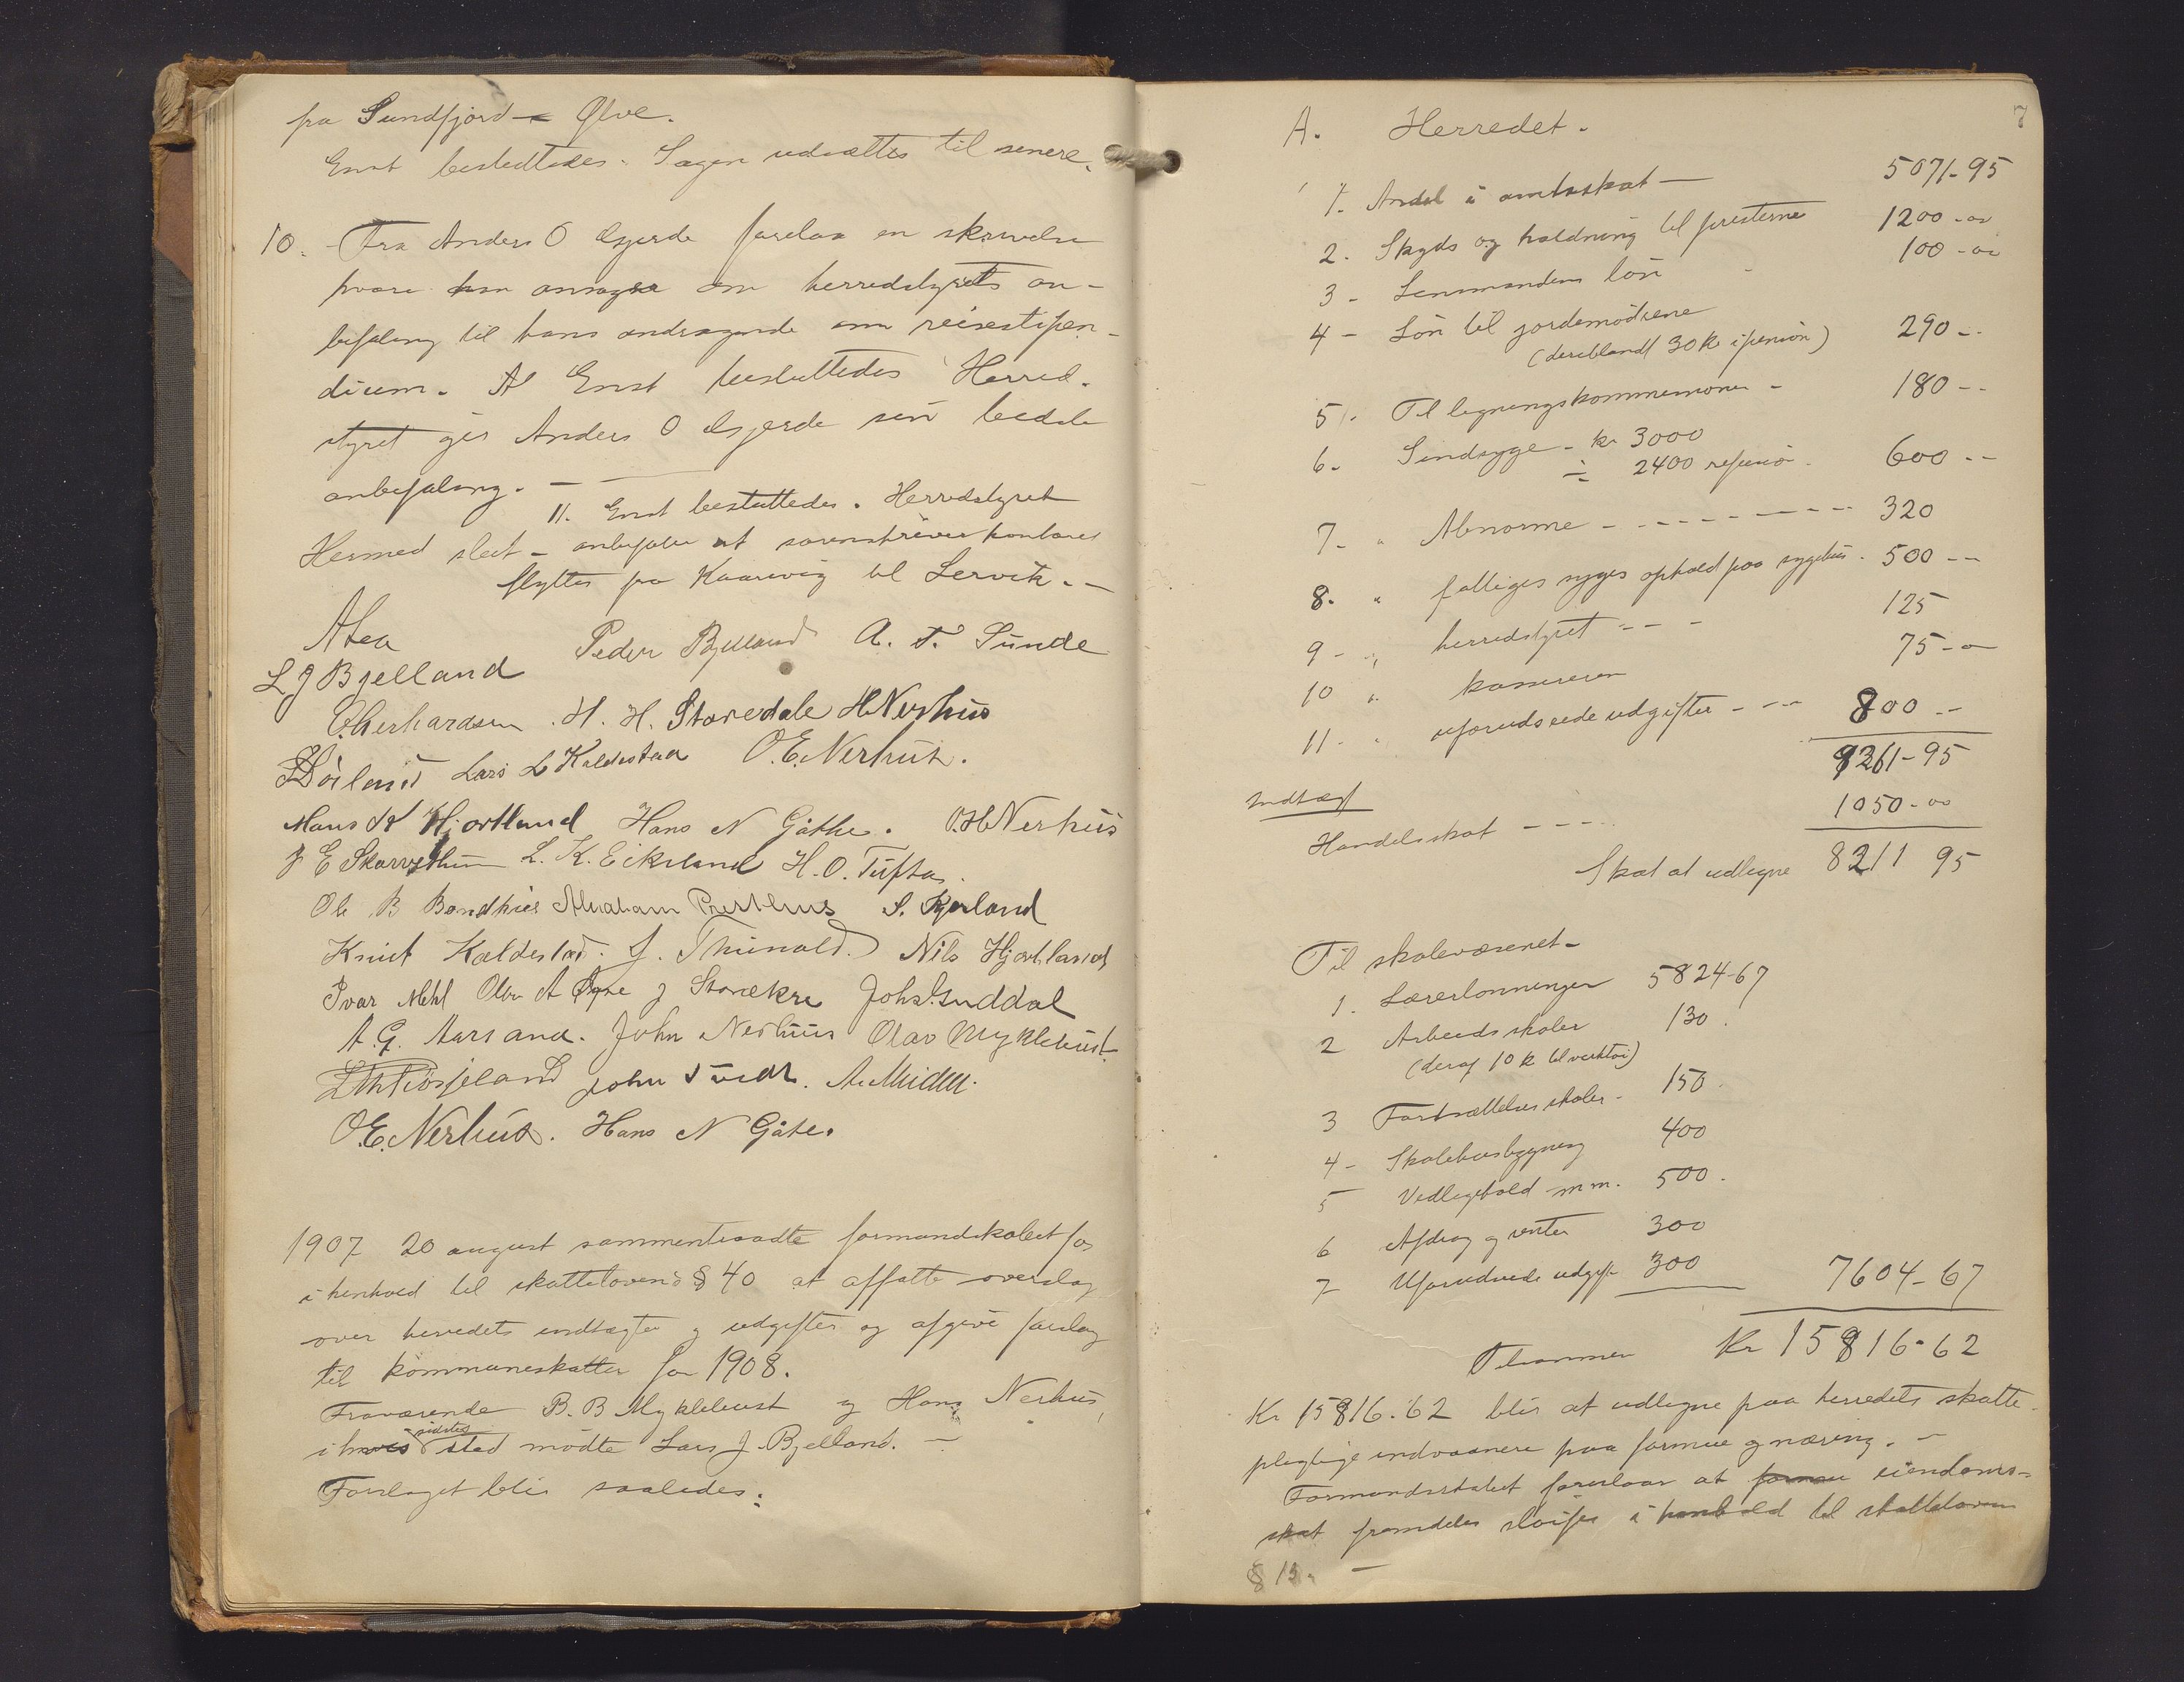 fra Sundfjord - Ølve.
Enst besluttedes. Sagen udsættes til senere.
10. Fra Anders O Øgjerde forelaa en skrivelse
hvori han ansøger om herredstyrets an-
befaling til hans andragende om reisestipen-
dium. Al Enst besluttedes Herred-
styret gir Anders O Øgjerde sin bedste
anbefaling. —
11. Enst besluttedes. Herredstyret
Hermed slut - anbefaler at sorenskriverkontoret
flyttes fra Kaarevig til Lervik. -
A Lea
Peder Bjelland A. T. Sunde
L J Bjelland
O. Gerhardsen. H. H. Staredale H Nerhus
Lars L Kaldestad O. E. Nerhus.
Mons K Hjortland Hans N Gåthe. O. H Nerhus
J E Skarvethun L. K. Eikeland H. O. Tufta.
Ole B Bondhus Abraham Presthus S. Kjerland
Knut Kaldestad. J. Thunold. Nils Hjortland
Ivar Mehl Olav A Øyre J Storækre Joh. Guddal
A. G. Aarsand. John Nerhuus Olav Myklebust
John Tvedt. A. Midttu.
O. E. Nerhus. Hans N Gåte.
1907 20 august sammentraadte formandskabet for
i henhold til skattelovens § 40 at affatte overslag
over herredets indtægter og udgifter og afgive forslag
til kommuneskatter for 1908.
Fraværende B. B Myklebust og Hans Nerhus,
i hvis sidstes sted mødte Lars J. Bjelland. -
Forslaget blir saaledes:
7
A. Herredet.
1. Andel i amtsskat — 5071-95
2. Skyds og holdning til presterne 1200-00
3 - Lensmandens løn 100-00
4 - Løn til jordemødrene
(deriblandt 30 kr i pension) 290 --
5 - Til ligningskommissionen - 180 --
6. Sindsyge - kr 3000
÷ 2400 refusion. 600 --
7 - " Abnorme - - - - - - - - 320
8. " fattiges syges ophold paa sygehus. 500 --
9 - " herredstyret - - - 125
10 " kassereren 75-00
11 - " uforudseede udgifter - - - 800 --
9261-95
Indtægt
Handelsskat - - - - 1050-00
Skat at udlegne 8211 95
Til skolevæsenet -
1. Lærerlønninger 5824-67
2 Arbeidsskoler 130.
(deraf 10 k til verktøi)
3 Fortsættelsesskoler - 150.
4 - Skolehusbygning 400
5 Vedligehold m.m. 500.
6 Afdrag og renter 300
7 Uforudseede udgifter 300 7604-67
Tilsammen Kr 15816-62
Kr 15816.62 blir at udlegne paa herredets skatte-
pligtige indvaanere paa formue og næring. -
Formandskabet foreslaar at formue eiendoms-
skat fremdeles sløifes i henhold til skatteloven
§ 13. -